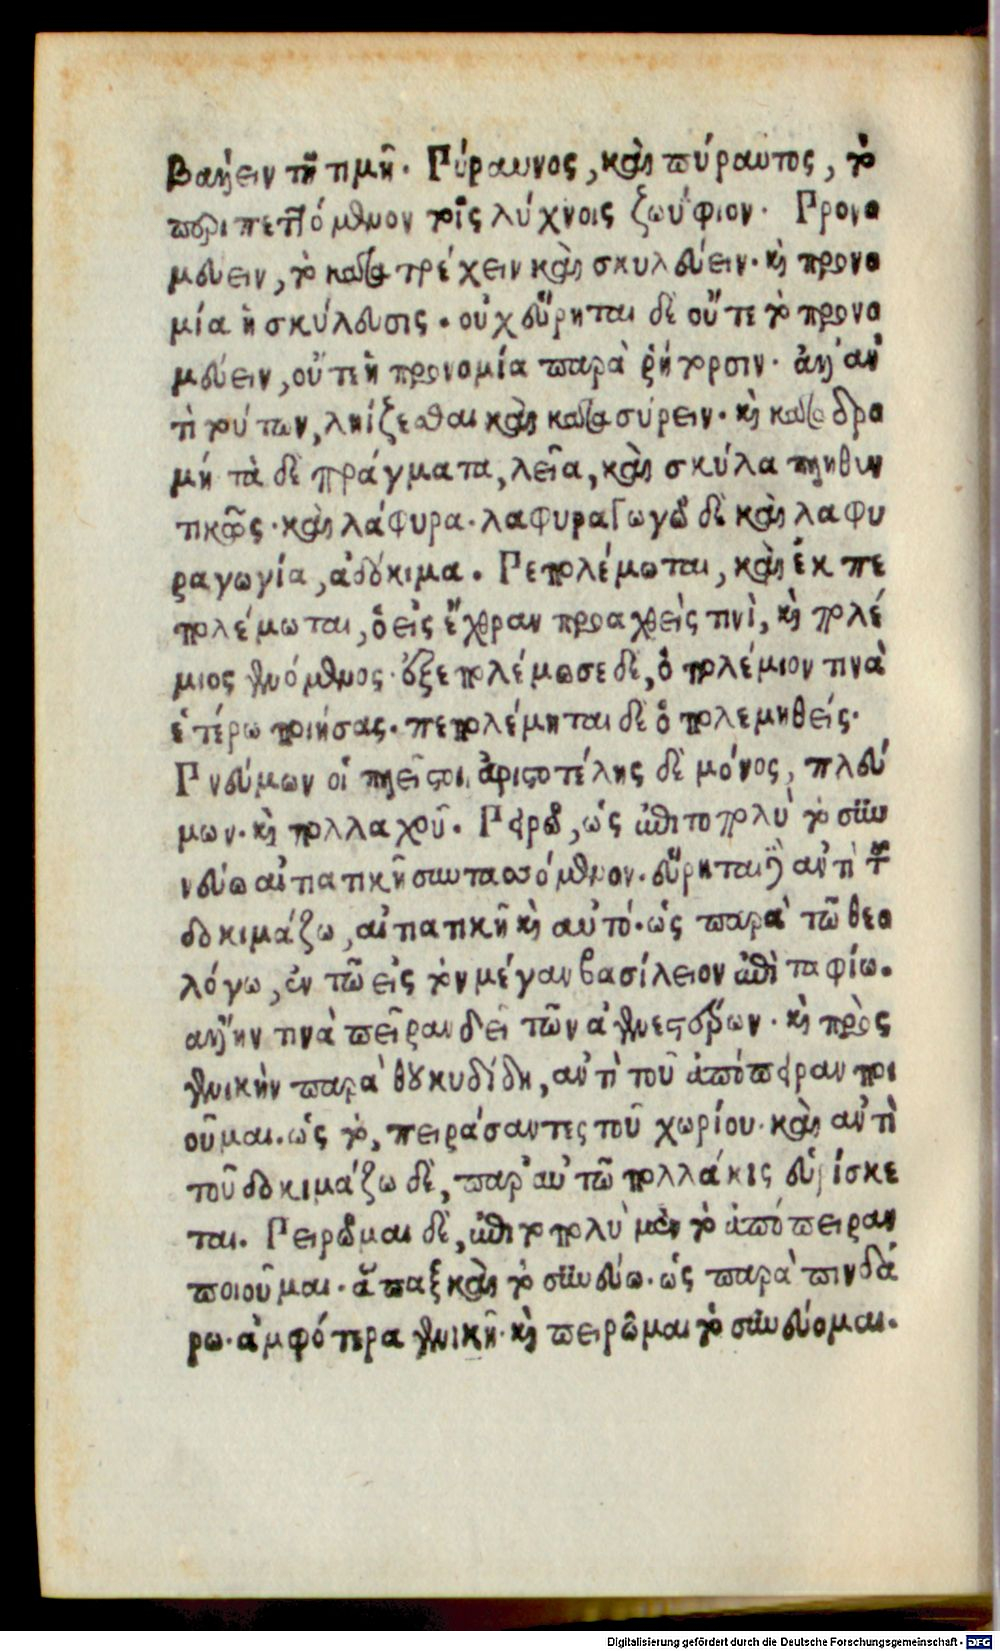 βάλλειν τῇ τιμῇ. Πύραυνος, καὶ πύραυτος, τὸ
περιπετόμενον τοῖς λύχνοις ζωΰφιον. Προνο
μεύειν, τὸ κατατρέχειν καὶ σκυλεύειν. καὶ προνο
μία ἡ σκύλευσις. οὐχ εὕρηται δὲ οὔτε τὸ προνο
μεύειν, οὔτε ἡ προνομία παρὰ ῥήτορσιν. ἀλλ' ἀν
τὶ τούτων, ληίζεσθαι καὶ κατασύρειν. καὶ καταδρα
μή τὰ δὲ πράγματα, λεῖα, καὶ σκύλα πληθυν
τικῶς. καὶ λάφυρα. λαφυραγωγῶ δὲ καὶ λαφυ
ραγωγία, ἀδόκιμα. Πεπολέμωται, καὶ ἐκπε
πολέμωται, ὁ εἰς ἔχθραν προαχθεὶς τινὶ, καὶ πολέ
μιος γενόμενος. ἐξεπολέμωσε δὲ, ὁ πολέμιον τινὰ
ἑτέρω ποιήσας. πεπολέμηται δὲ ὁ πολεμηθείς.
Πνεύμων οἱ πλεῖστοι. ἀριστοτέλης δὲ μόνος, πλεύ
μων. καὶ πολλαχοῦ. Πειρῶ, ὡς ἐπιτοπολὺ τὸ συν
νεύω αἰτιατικῇ συντασσόμενον. εὕρηται δὲ ἀντὶ τοῦ
δοκιμάζω, αἰτιατικῇ καὶ αὐτό. ὡς παρὰ τῶ θεο
λόγω, ἐν τῶ εἰς τὸν μέγαν βασίλειον ἐπιταφίω.
ἄλλην τινὰ πεῖραν δεῖ τῶν ἀγενεστέρων. καὶ πρὸς
γενικὴν παρὰ θουκυδίδη, ἀντὶ τοῦ ἀπόπειραν ποι
οῦμαι. ὡς τὸ, πειράσαντες τοῦ χωρίου. καὶ ἀντὶ
τοῦ δοκιμάζω δὲ, παρ' αὐτῶ πολλάκις εὑρίσκε
ται. Πειρῶμαι δὲ, ἐπιτοπολὺ μὲν τὸ ἀπόπειραν
ποιοῦμαι. ἅπαξ καὶ τὸ συνεύω. ὡς παρὰ πινδά
ρω. ἀμφότερα γενικῇ. καὶ πειρῶμαι τὸ συνεύομαι.